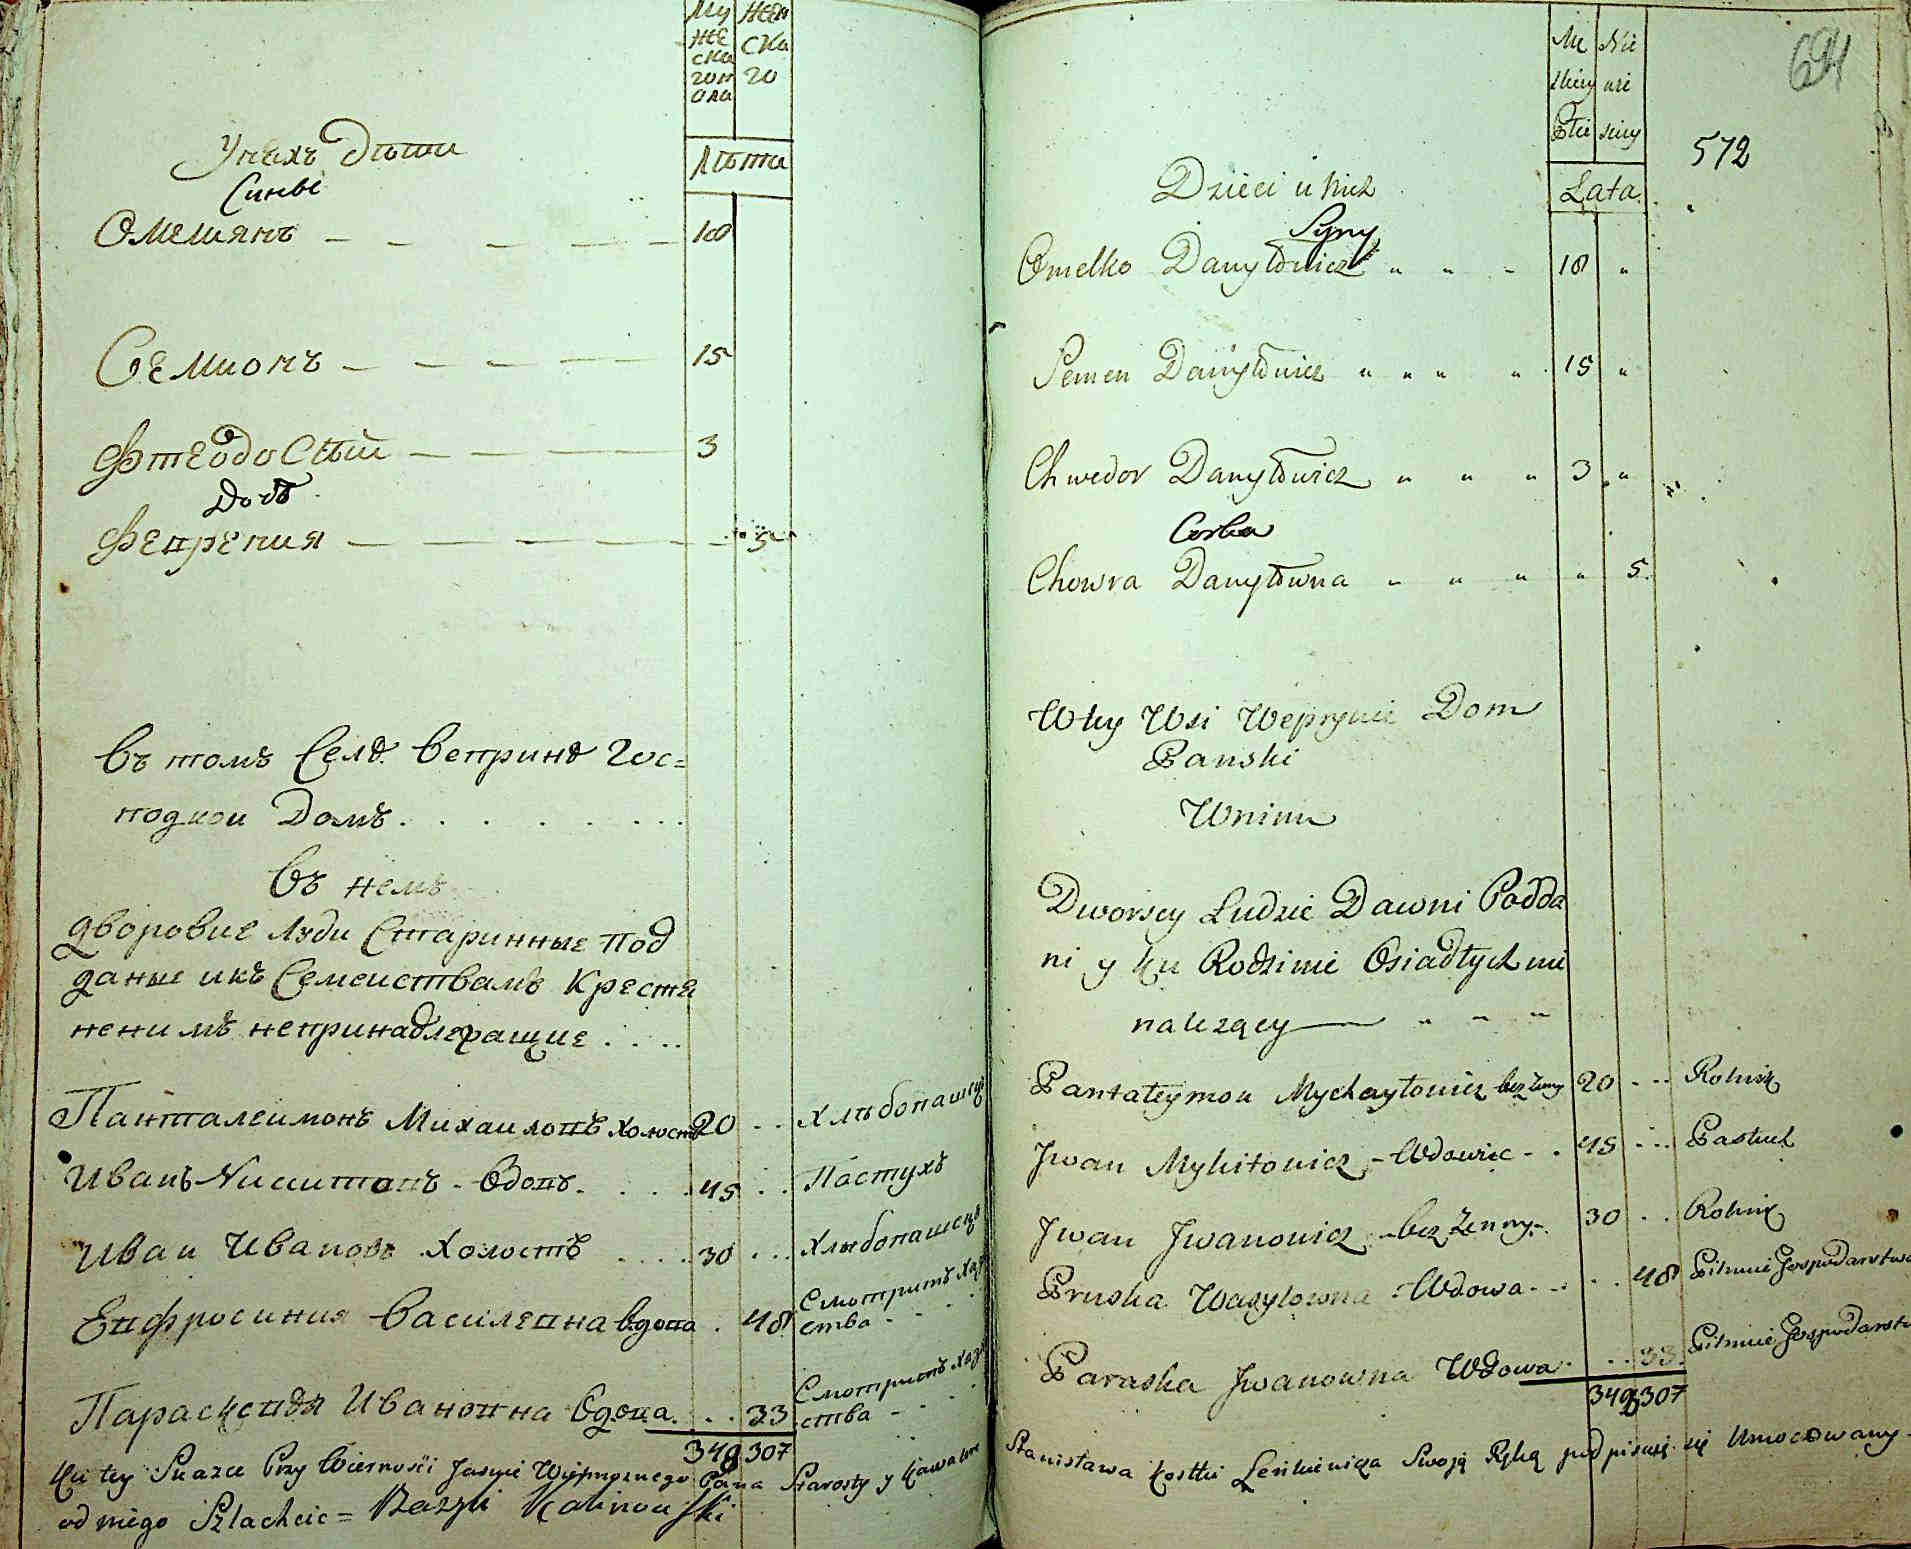 Му
жеска
го
пола
Женска
го
Лѣта
У нихъ дѣти
Сины
Омелианъ 18
Семионъ 15
Фтеодосѣй 3
Дочь
Феврония 5
Въ томъ Селѣ Вепринѣ Гос=
подкои Домъ
Въ немъ
дворовие люди Старинные под
даные и къ Семействамъ Крестя
нскимъ непринадлежащие
Панталеимонъ Михаиловъ холостъ 20 Хлѣбопашецъ
Иванъ Никитовъ Вдовъ 45 Пастухъ
Иван Ивановъ Холостъ 30 Хлѣбопашецъ
Евфросиния Василевна вдова 48 Смотритъ хозя
ства
Параскевия Ивановна Вдова 33 Смотритъ хозя
ства
348 307
Ku tey Skazce Przy Wierności Jasnie Wielmożnego Pana Starosty y Kawalera
od niego Szlachcic = Bazyli Kalinowski
694
572
Me
skiey
Płci
Nie
wie
sciey
Lata
Dzieci u nich
Syny
Omelko Danyłowicz 18
Semen Danyłowicz 15
Chwedor Danyłowicz 3
Corka
Chowra Danyłowna 5
W tey Wsi Weprynie Dom
Panski
W nim
Dworscy Ludzie Dawni Podda
ni y ku Rodzinie Osiadłych nie
należący
Pantałeymon Mychayłowicz bez żony 20 Rolnik
Jwan Mykitowicz Wdowiec 45 Pastuch
Jwan Jwanowicz bez Żonny 30 Rolnik
Pruska Wasylowna Wdowa 48 Pilnuie Gospodarstwa
Paraska Jwanowna Wdowa 33 Pilnuie Gospodarstwa
348 307
Stanisława Kostki Leńkiewicza Swoją Ręką podpisuię się Umocowany